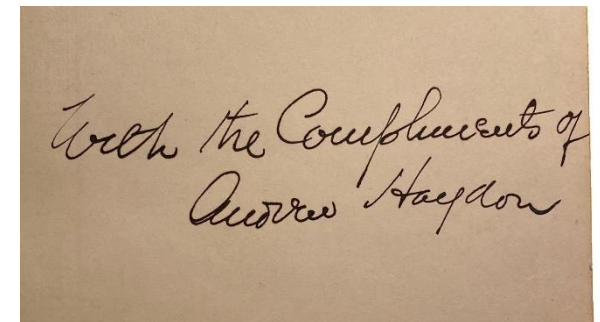 With the Compliments of
Andrew Haydon